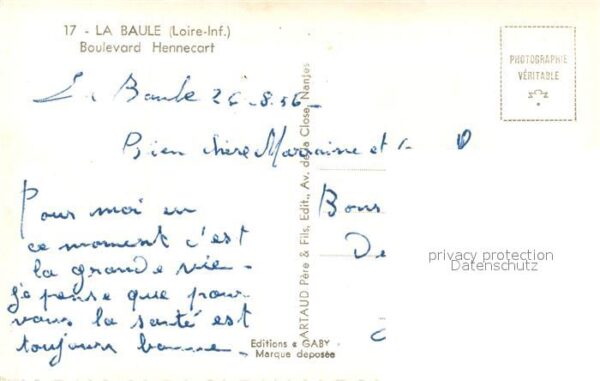 17 - LA BAULE (Loire-Inf.)
Boulevard Hennecart
PHOTOGRAPHIE
VÉRITABLE
La Baule 26-8.56-
Bien chère Marraine et
Pour moi en
ce moment c'est
la grande vie -
je pense que pour
vous la santé est
toujours bonne -
Bons
De
ARTAUD Père & Fils, Edit., Av. de la Close, Nantes
Editions « GABY »
Marque déposée
privacy protection
Datenschutz